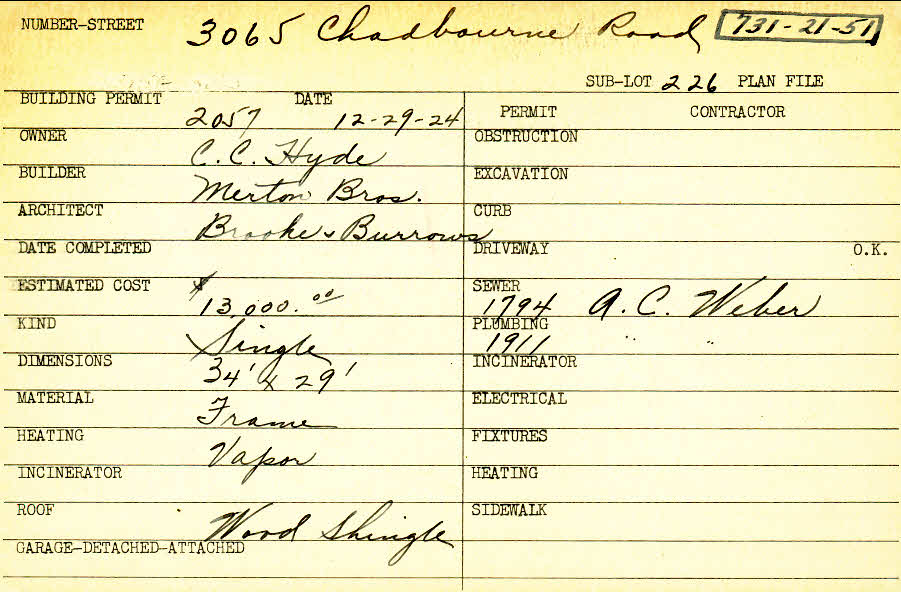 NUMBER-STREET 3065 Chadbourne Road 731-21-51
SUB-LOT 226 PLAN FILE
BUILDING PERMIT 2057 DATE 12-29-24
PERMIT CONTRACTOR
OWNER C. C. Hyde
OBSTRUCTION
BUILDER Merton Bros.
EXCAVATION
ARCHITECT Brooke & Burrows
CURB
DATE COMPLETED
DRIVEWAY O.K.
ESTIMATED COST $13,000.00
SEWER 1794 A. C. Weber
KIND Single
PLUMBING 1911 " "
DIMENSIONS 34' x 29'
INCINERATOR
MATERIAL Frame
ELECTRICAL
HEATING Vapor
FIXTURES
INCINERATOR
HEATING
ROOF Wood Shingle
SIDEWALK
GARAGE-DETACHED-ATTACHED